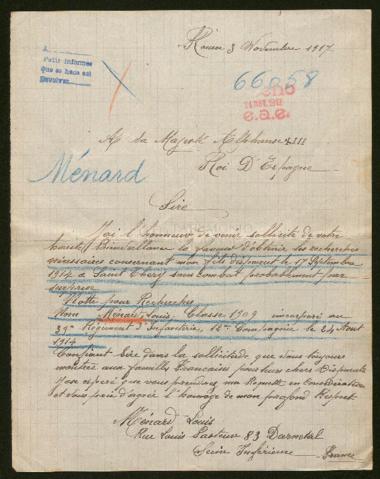 A
Pedir informes
que se hace est
Rouen 3 Novembre 1917
66058
e.a.e.
A Sa Majesté Alphonse XIII
Roi D'Espagne
Ménard
Sire
J'ai l'honneur de venir sollicité de votre
Bienveillance la faveur d'obtenir les recherches
nécessaires concernant mon fils disparut le 17 Septembre
1914 à Saint Thery sous combat probablement par
surprise
Notte pour Recherches
Nom Ménard Louis, Classe 1909 incorporé au
39e Régiment d'Infanterie, 12e Compagnie le 24 Aout
1914
Confiant Sire dans la sollicitude que vous toujours
montrée aux familles Francaises pour leurs chers Disparuts
J'ose espéré que vous prendrez ma Requette en Considération
et vous prie d'agréer l'homage de mon profond Respect
Ménard Louis
Rue Louis Pasteur 83 Darnetal
Seine Inférieure France